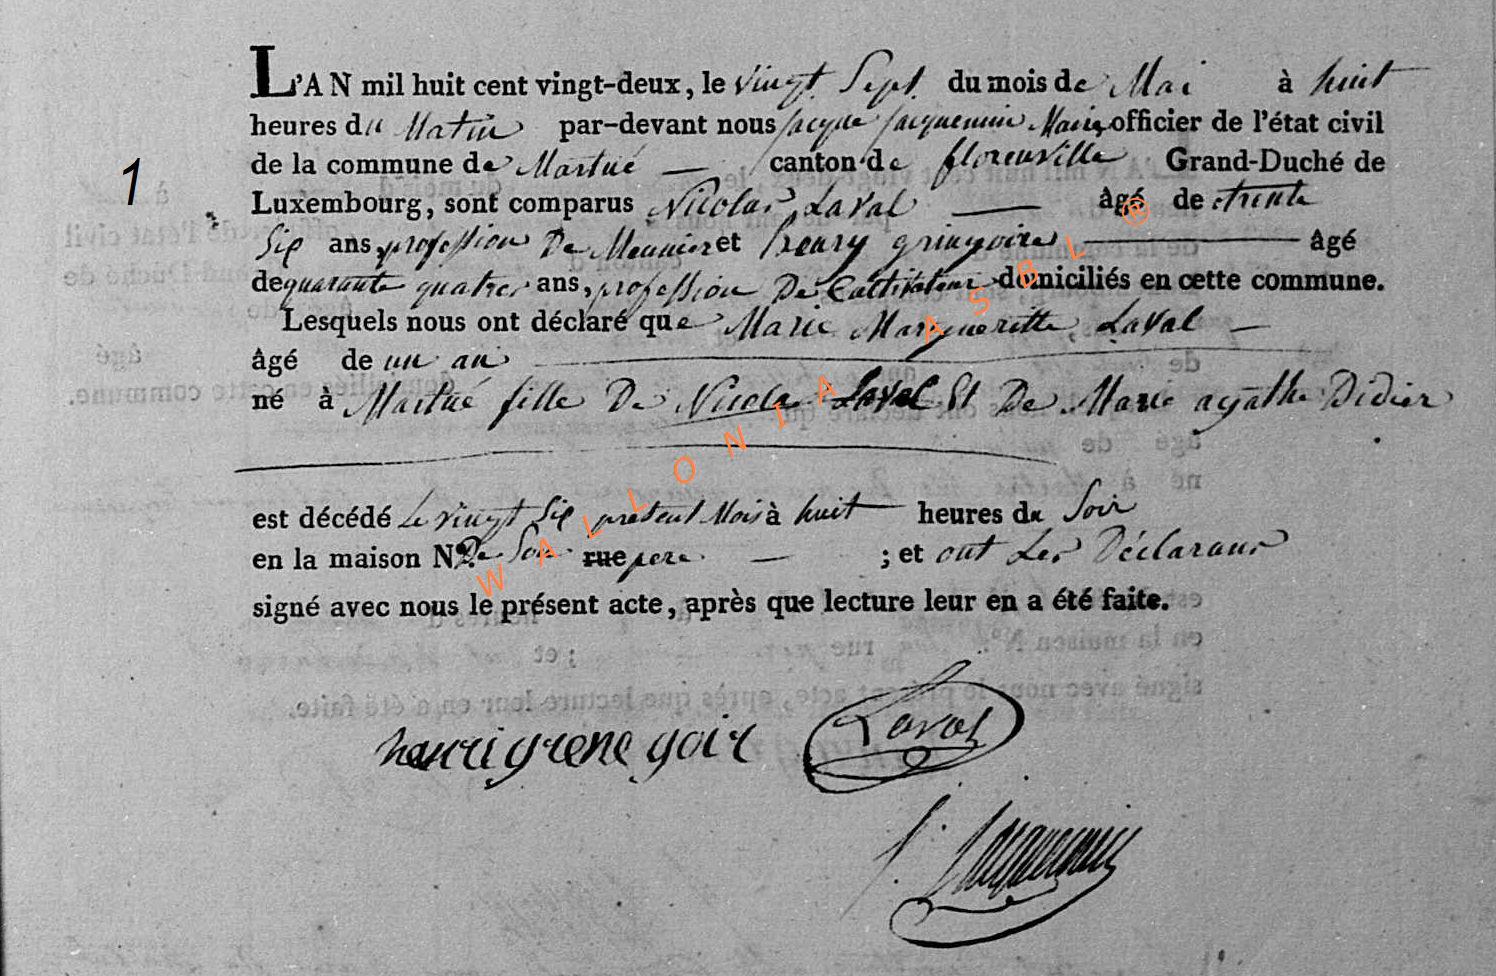 L'AN mil huit cent vingt-deux, le vingt Sept du mois de Mai à huit
heures du Matin par-devant nous jacque jacquemin Maire officier de l'état civil
1
de la commune de Martué — canton de florenville Grand-Duché de
Luxembourg, sont comparus Nicolas Laval — âgé de trente
Six ans, profession De Meunier et henry gringoire — âgé
de quarante quatre ans, profession De Cultivateur domiciliés en cette commune.
Lesquels nous ont déclaré que Marie Margueritte Laval —
âgé de un an —
né à Martué fille De Nicolas Laval Et De Marie agathe Didier
est décédé Le vingt Six présent Mois à huit heures du Soir
en la maison N.º De Son rue pere — ; et ont Les Déclarans
signé avec nous le présent acte, après que lecture leur en a été faite.
henri grene goir Laval
J. Jacquemin
WALLONIA ASBL ®